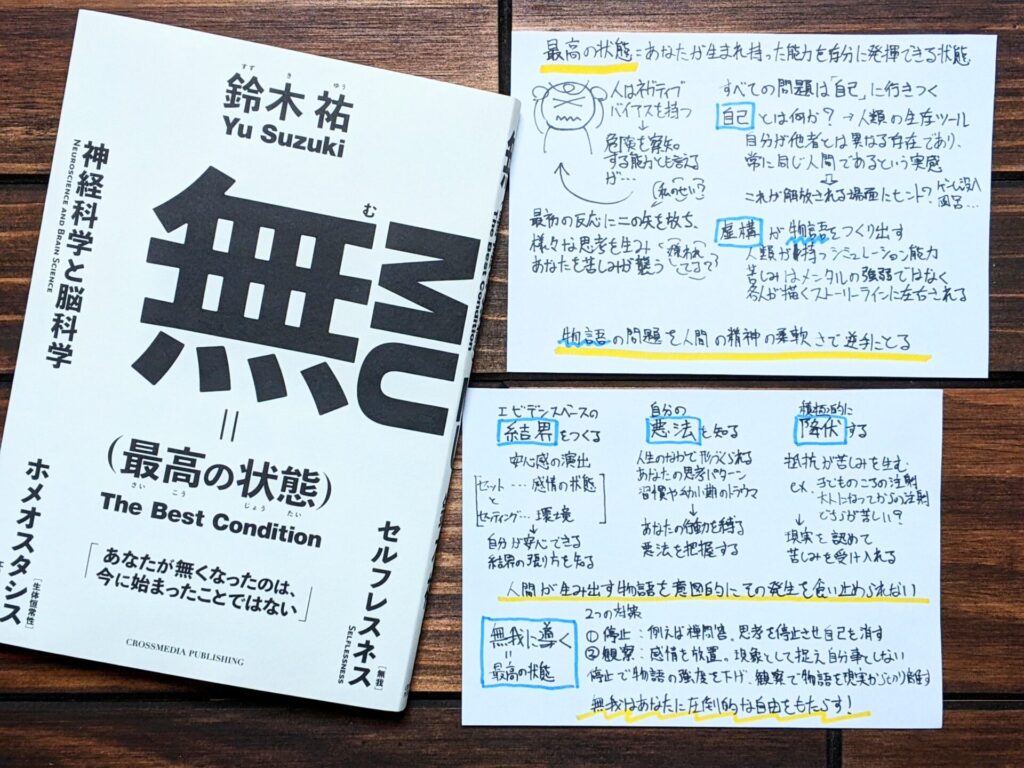 すず き ゆう
鈴木 祐
Yu Suzuki
神経科学と脳科学
NEUROSCIENCE AND BRAIN SCIENCE
む
無
MU
The Best Condition
=
(最高の状態)
さい こう じょう たい
The Best Condition
「あなたが無くなったのは、
今に始まったことではない」
ホメオスタシス
[生体恒常性]
セルフレスネス
[無我]
SELFLESSNESS
CROSSMEDIA PUBLISHING
最高の状態=あなたが生まれ持った能力を存分に発揮できる状態
人はネガティブ
バイアスを持つ
↓
危険を察知
する能力とも言える
が…
(私のせい?)
最初の反応に二の矢を放ち、
様々な思考を生み
あなたを苦しみが襲う
すべての問題は「自己」に行きつく
自己とは何か? → 人類の生存ツール
自分が他者とは異なる存在であり、
常に同じ人間であるという実感
⇓
これが解放される場面にヒント?
虚構が物語をつくり出す
人類が持つシミュレーション能力
苦しみはメンタルの強弱ではなく
各人が描くストーリーラインに左右される
物語の問題を人間の精神の柔軟さで逆手にとる
エビデンスベースの
結界をつくる
安心感の演出
セット … 感情の状態
と
セッティング… 環境
↓
自分が安心できる
結界の張り方を知る
自分の
悪法を知る
人生のなかで形づくられる
あなたの思考パターン
習慣や幼少期のトラウマ
↓
あなたの行動を縛る
悪法を把握する
積極的に
降伏する
抵抗が苦しみを生む
ex. 子どものころの注射
大人になってからの注射
どちらが苦しい?
↓
現実を認めて
苦しみを受け入れる
人間が生み出す物語を意図的にその発生を食い止められない
無我に導く
=
最高の状態
2つの対策
① 停止 : 例えば禅問答、思考を停止させ自己を消す
② 観察 : 感情を放置。現象として捉え自分事としない
停止で物語の強度を下げ、観察で物語を現実から切り離す
無我はあなたに圧倒的な自由をもたらす!